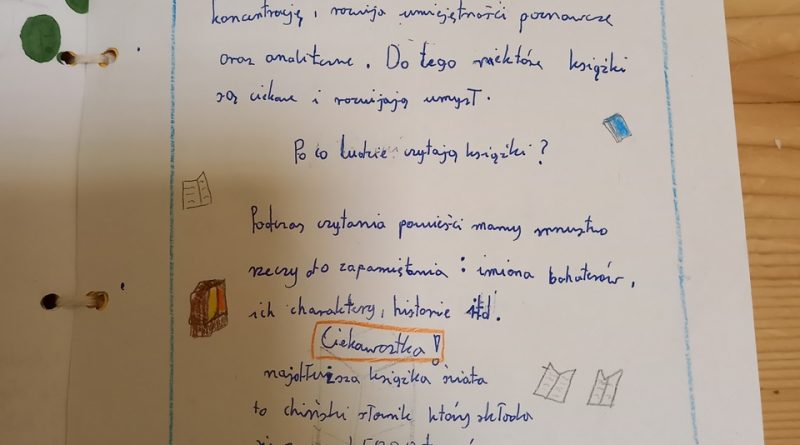 koncentrację, rozwija umiejętności poznawcze
oraz analityczne. Do tego niektóre książki
są ciekawe i rozwijają umysł.
Po co ludzie czytają książki?
Podczas czytania powieści mamy mnóstwo
rzeczy do zapamiętania: imiona bohaterów,
ich charaktery, historie itd.
Ciekawostka!
najdłuższa książka świata
to chiński słownik który składa
się